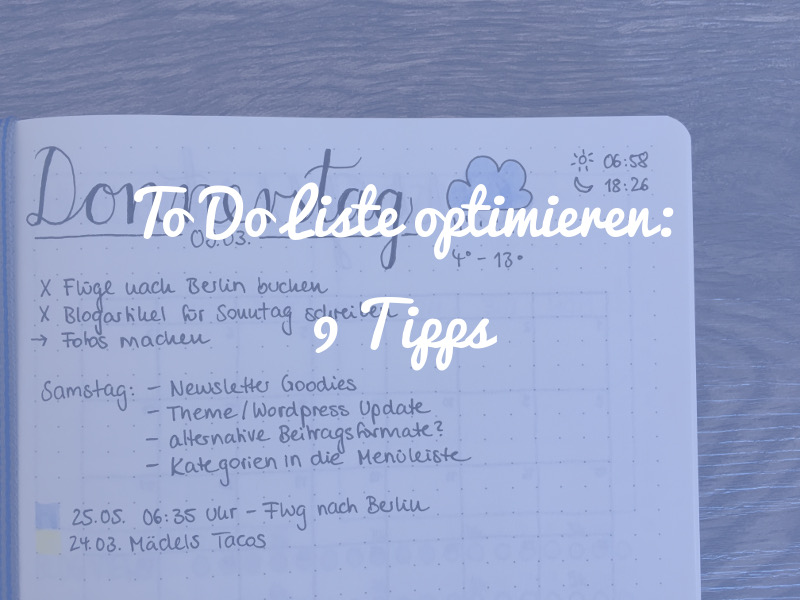 Donnerstag
06:58
18:26
To Do Liste optimieren:
4° - 13°
X Flüge nach Berlin buchen
X Blogartikel für Sonntag schreiben
9 Tipps
→ Fotos machen
Samstag: - Newsletter Goodies
- Theme/Wordpress Update
- alternative Beitragsformate?
- Kategorien in die Menüleiste
25.05. 06:35 Uhr - Flug nach Berlin
24.03. Mädels Tacos